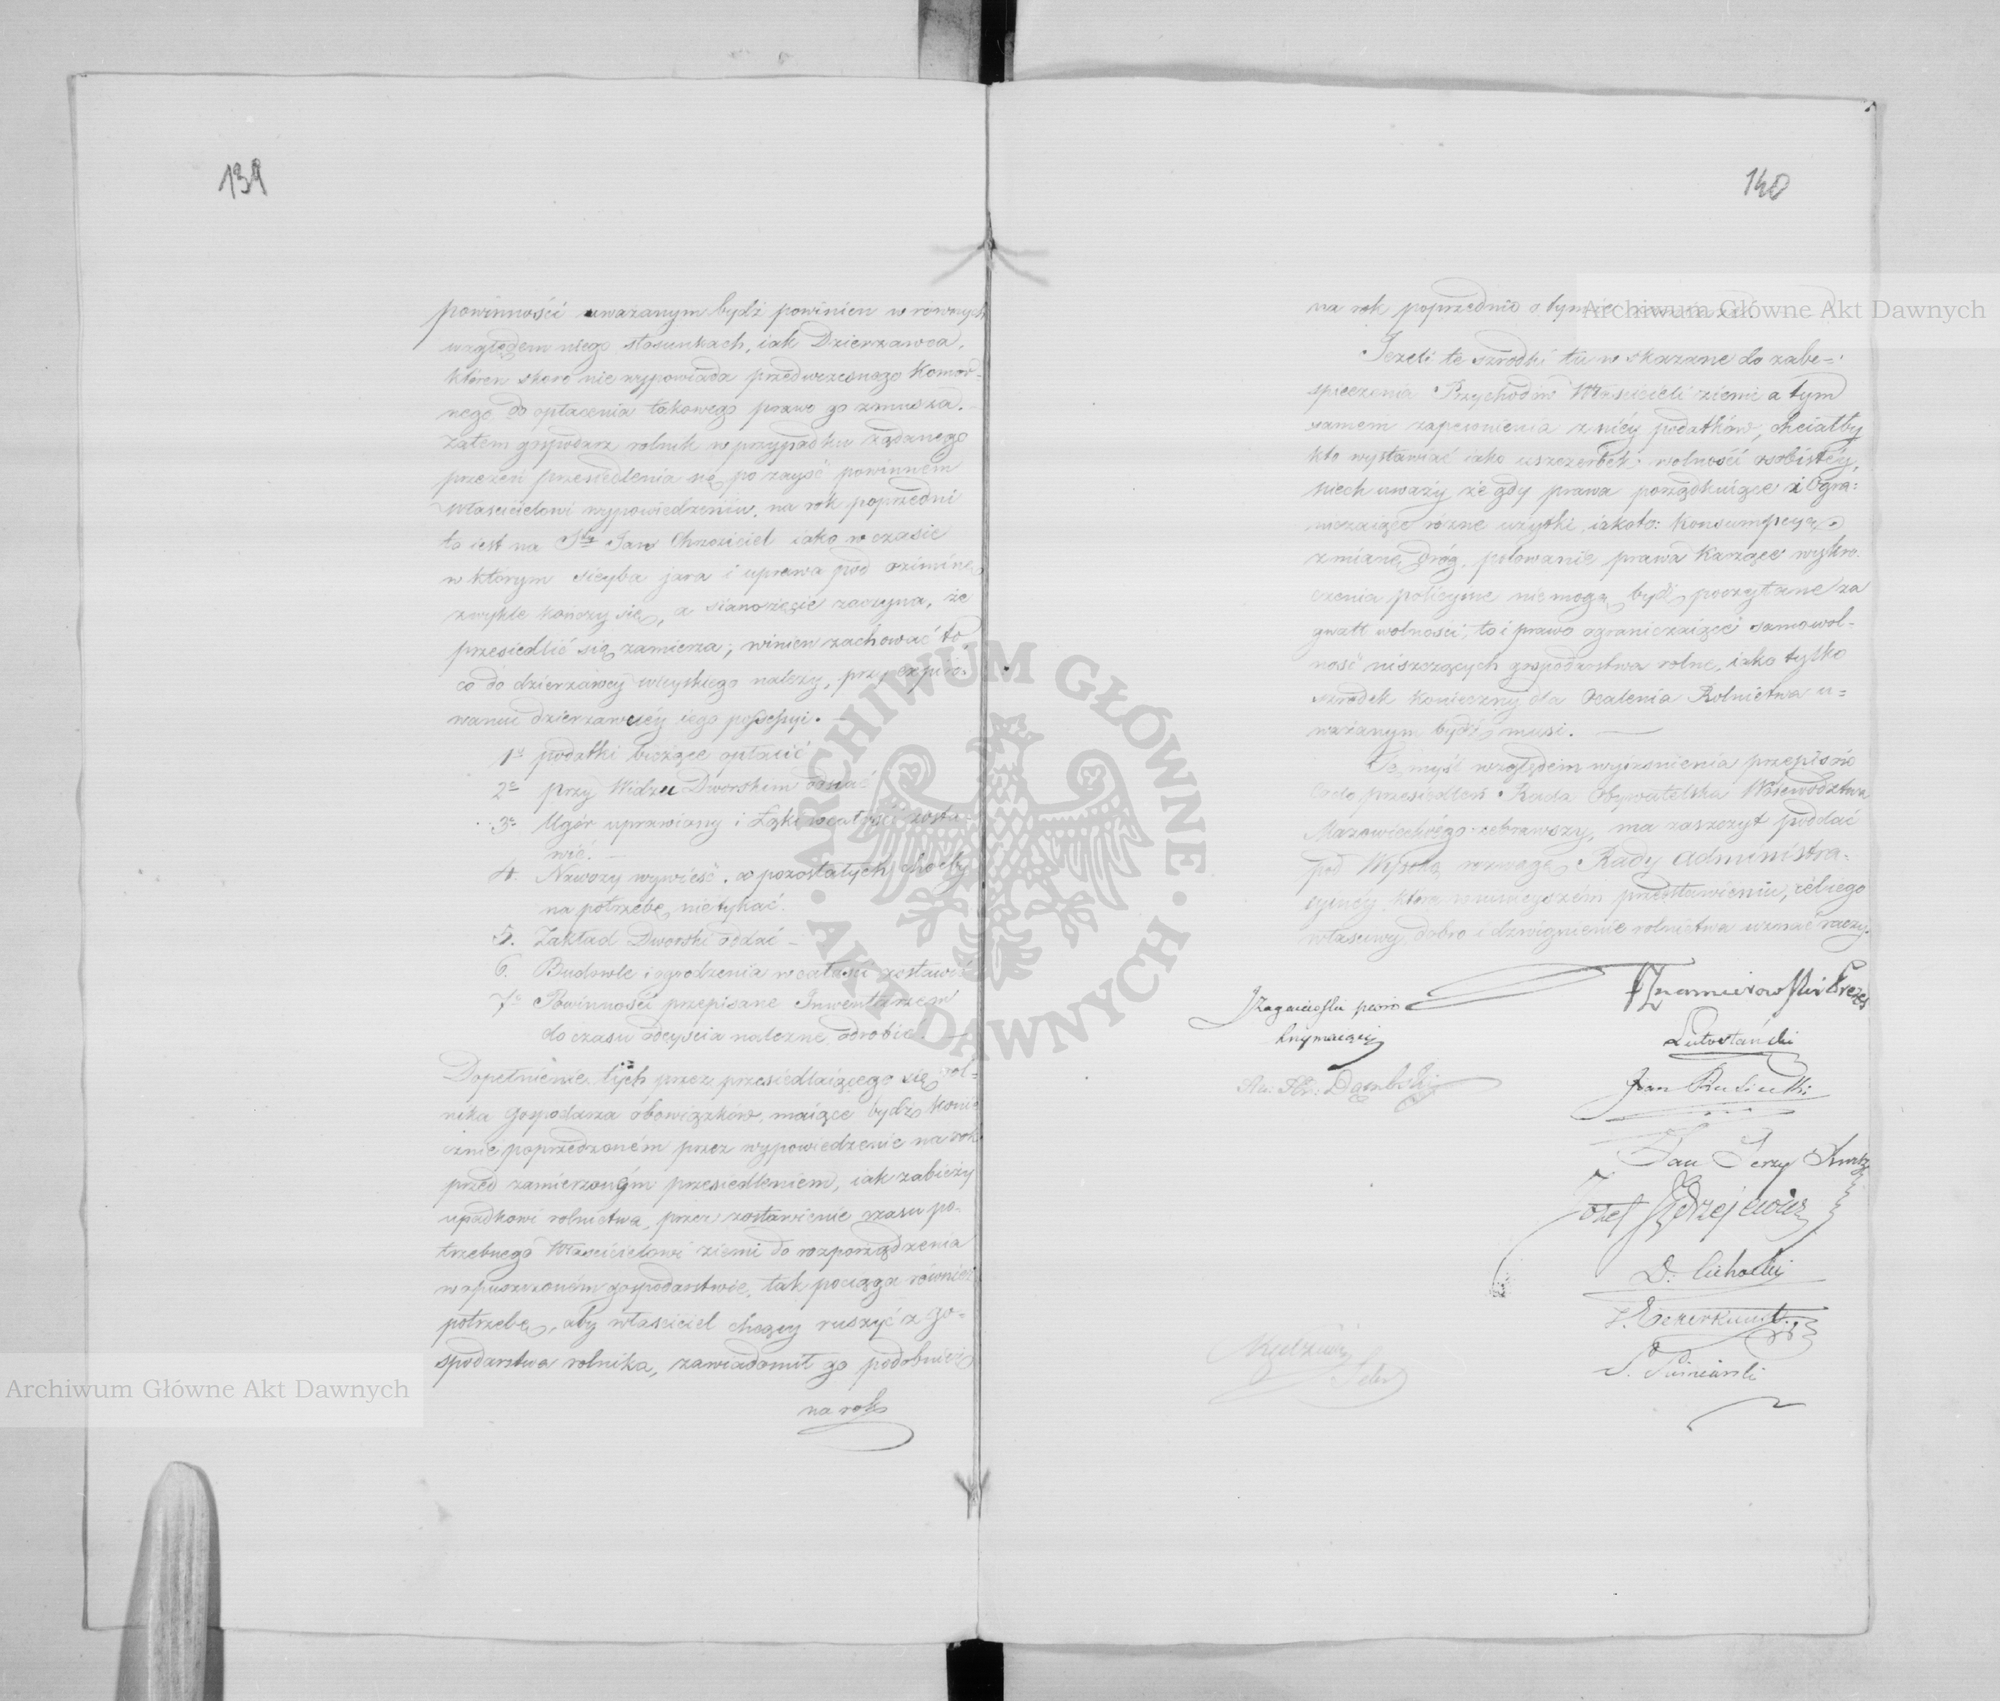 139
powinności uważanym bydź powinien w równych
względem niego stosunkach, iak Dzierzawca,
któren skoro nie wypowiada przed wczesnego Komor-
nego do opłacenia takowego prawo go zmusza.
Zatem gospodarz rolnik w przypadku żądanego
przezeń przesiedlenia się, po zayść powinnem
Właścicielowi wypowiedzeniu, na rok poprzedni
to iest na Sty Jan Chrzciciel iako w czasie
w którym sieyba jara i uprawa pod oziminę
zwykle kończy się, a sianożęcie zaczyna, że
przesiedlić się zamierza; winien zachować to
co do dzierzawcy wieyskiego należy, przy expiro-
waniu dzierzawney iego possessyi. —
1o podatki bieżące opłacić
2o przy Widzu Dworskim odsiać
3o Ugór uprawiony i Łąki w całości zosta-
wić. —
4. Nawozy wywieść, a pozostałych choćby
na potrzebę nie tykać.
5. Zakład Dworski oddać —
6. Budowle i ogrodzenia w całości zostawić
7o Powinności przepisane Inwentarzem
do czasu odeyścia należne odrobić. —
Dopełnienie tych przez przesiedlaiącego się rol-
nika Gospodarza obowiązków, maiące bydź konie
cznie poprzedzoném przez wypowiedzenie na rok
przed zamierzonym przesiedleniem, iak zabieży
upadkowi rolnictwa, przez zostawienie czasu po-
trzebnego Właścicielowi ziemi do rozporządzenia
w opuszczoném gospodarstwie, tak pociąga również
potrzebę, aby właściciel chcący ruszyć z go-
spodarstwa rolnika, zawiadomił go podobnież
na rok
140
na rok poprzednio o tym
Jeżeli te szrodki tu wskazane do zabe-
spieczenia Przychodów Właścicieli ziemi a tym
samem zapewnienia z niéy podatków, chciałby
kto wystawiać iako uszczerbek wolności osobistéy,
niech uważy że gdy prawa porządkuiące i Ogra-
niczaiące różne użytki, iakoto: Konsumpcyą,
zmianę dróg, polowanie prawa karzące wykro-
czenia policyjne nie mogą bydź poczytane za
gwałt wolności, to i prawo ograniczaiące samowol-
ność niszczących gospodarstwa rolne, iako tylko
szrodek konieczny dla Ocalenia Rolnictwa u-
ważanym bydź musi. —
Tę myśl względem wyiaśnienia przepisów
Co do przesiedleń Rada Obywatelska Województwa
Mazowieckiego zebrawszy, ma zaszczyt poddać
pod Wysoką rozwagę Rady Administra-
cyinéy, która w ninieyszém przedstawieniu, iéj iego
właściwy dobro i dzwignienie rolnictwa uznać raczy.
Znamierowski Prezes
Zagaiewski pióro
trzymaiący
Lutostański
Dembski
Jan Rusiecki
Jan Jerzy Kurtz
Józef Jędrzejewicz
D. Cichocki
S. Puniński
Archiwum Główne Akt Dawnych
Archiwum Główne Akt Dawnych
ARCHIWUM GŁÓWNE · AKT DAWNYCH ·